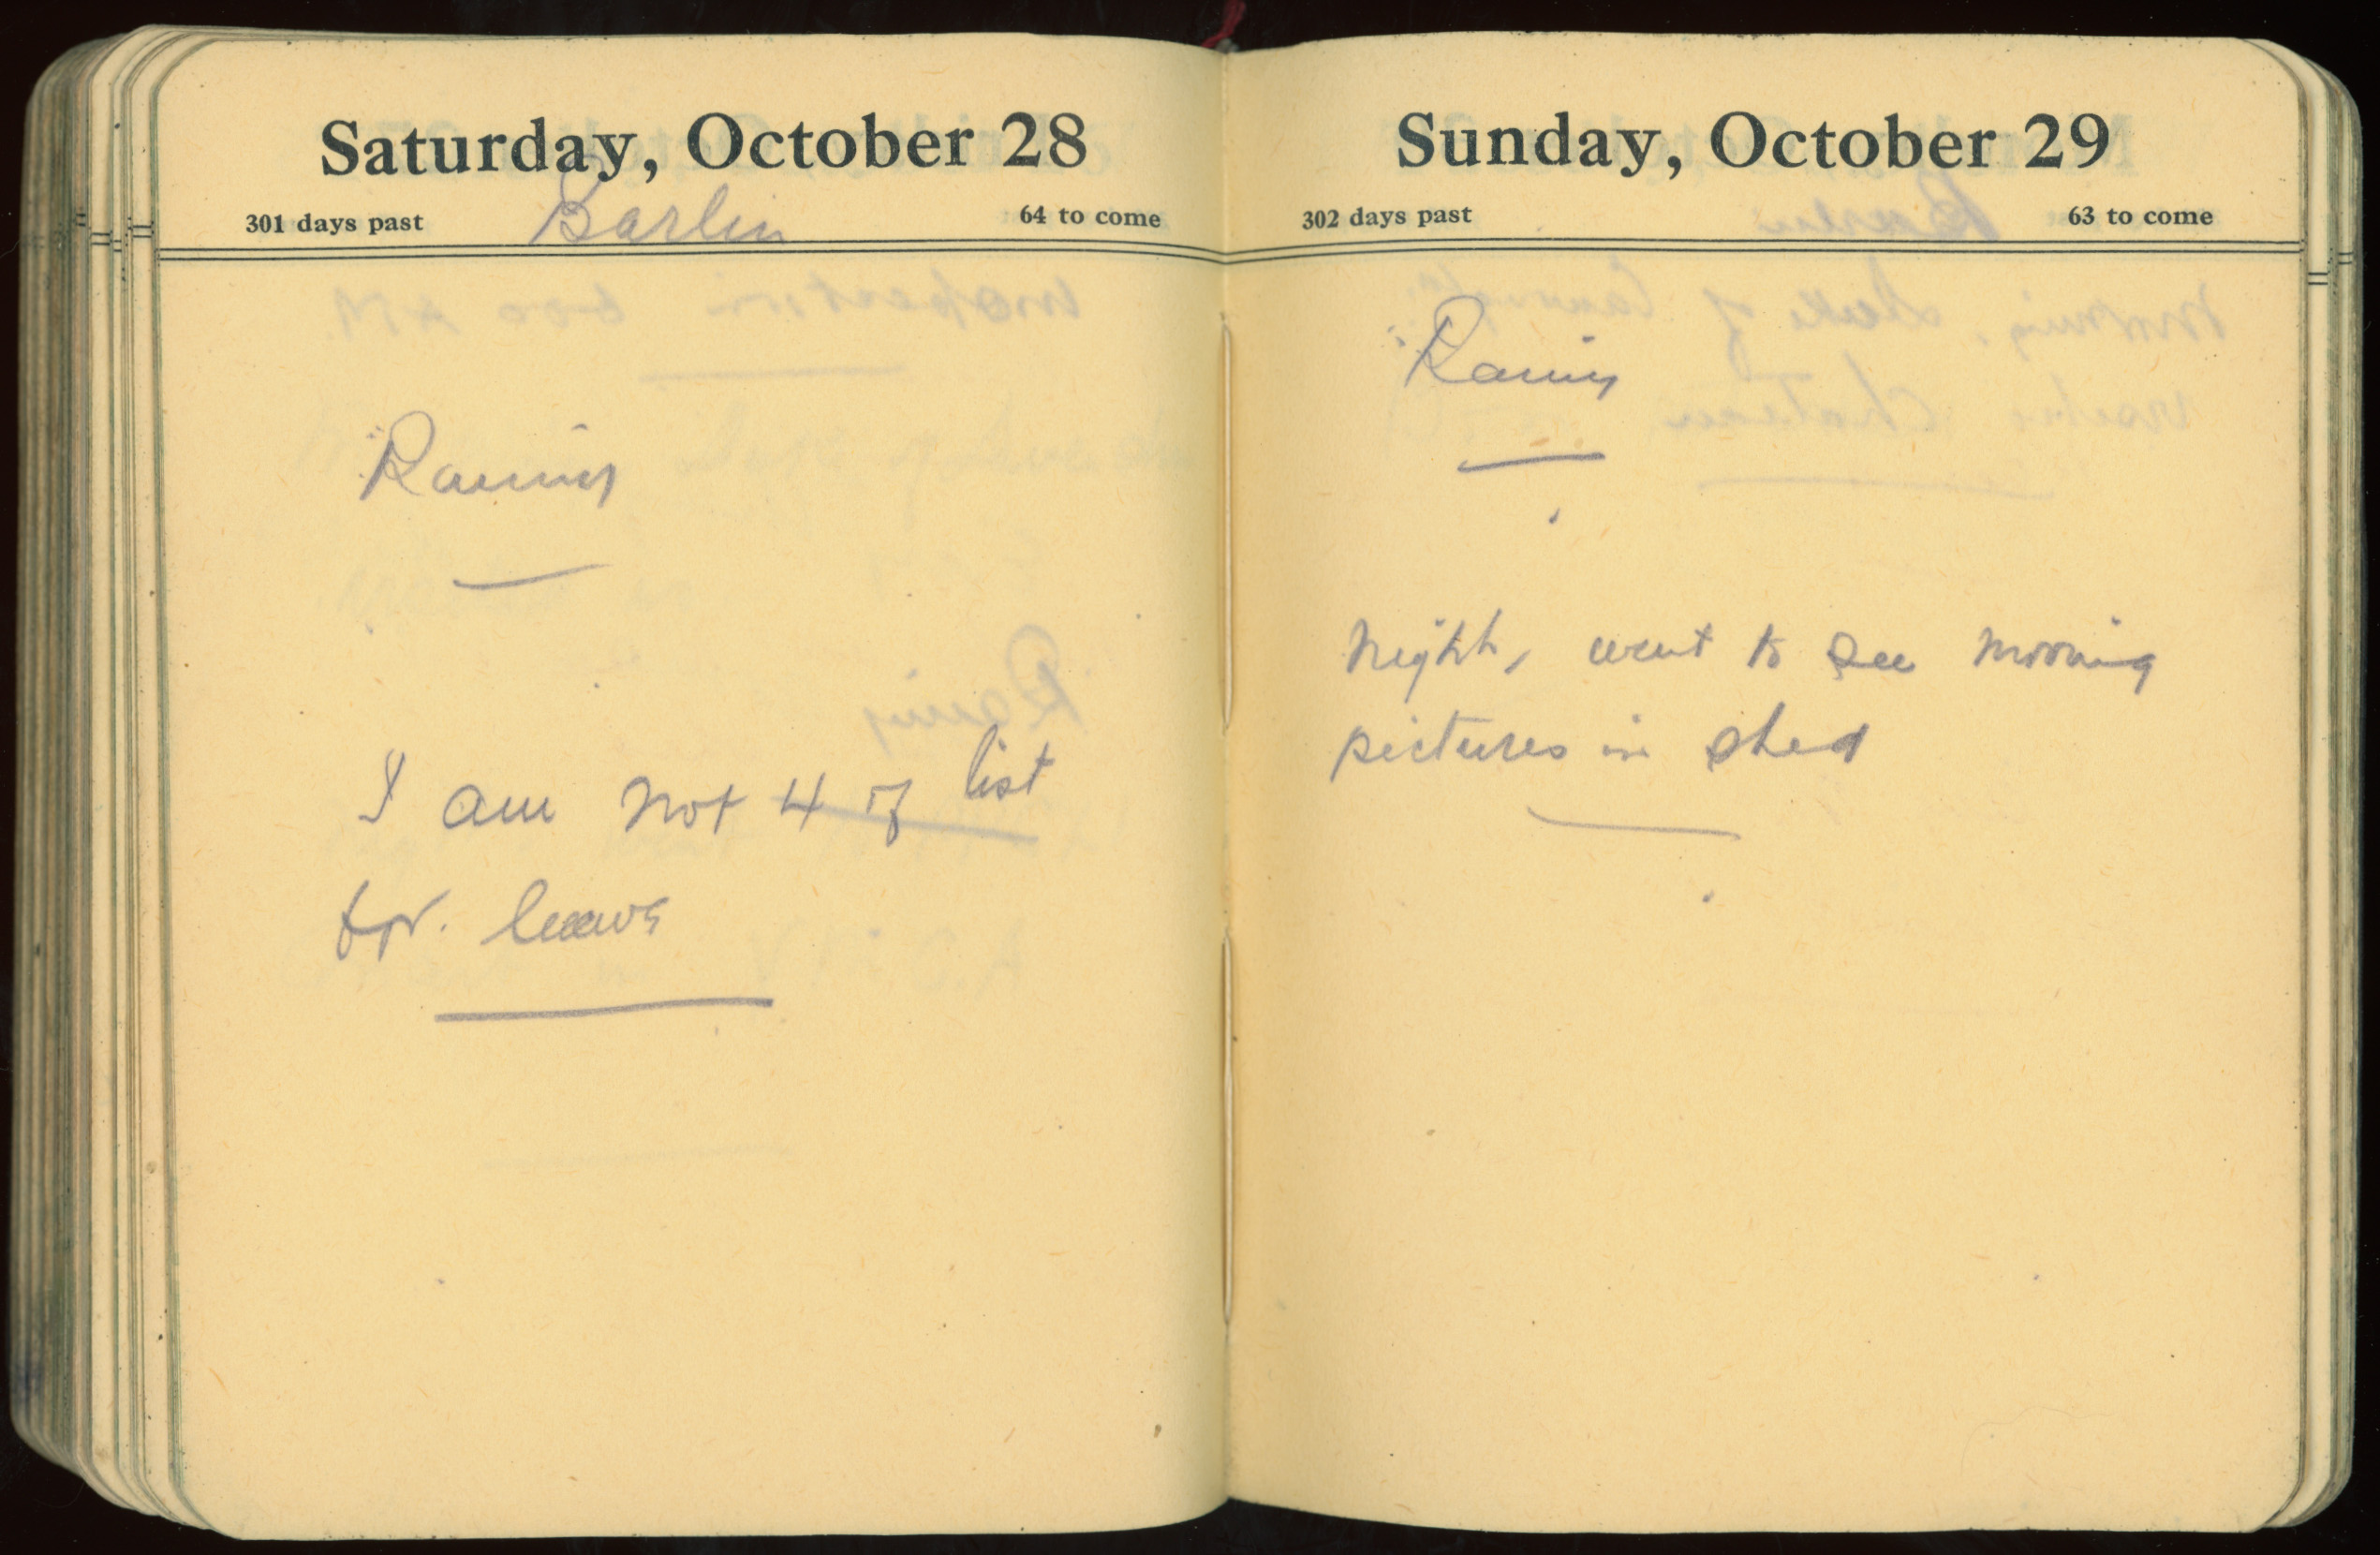 Saturday, October 28
301 days past Barlin 64 to come
Rainy
I am not 4 of list
for. leave
Sunday, October 29
302 days past 63 to come
Rainy
Night, went to see moving
pictures in shed